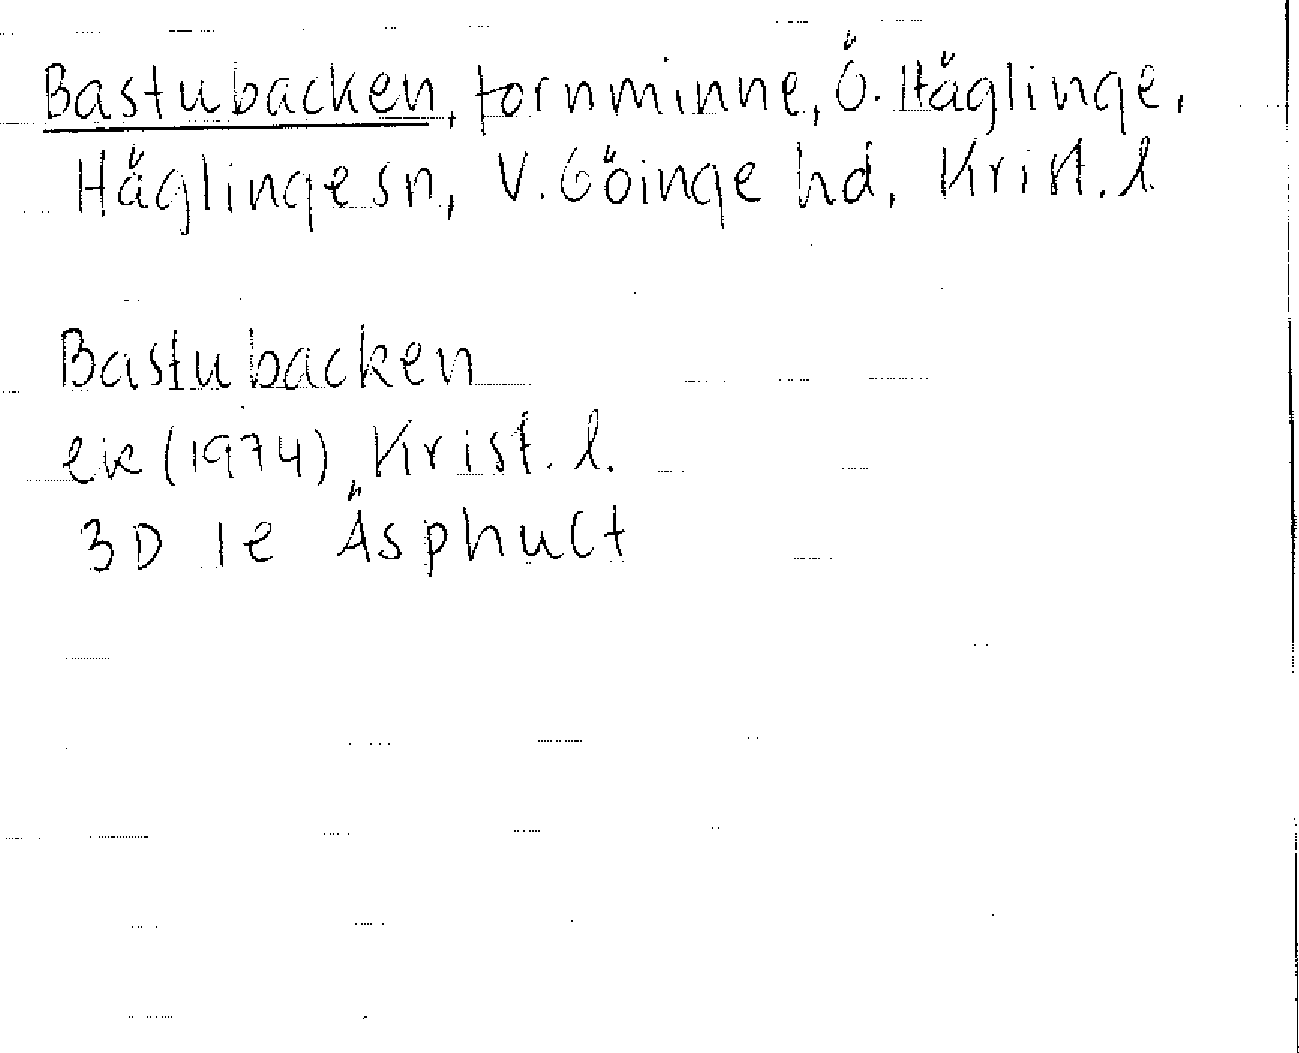 Bastubacken, fornminne, Ö. Häglinge,
Häglinge sn, V. Göinge hd, Krist. l
Bastubacken
ek (1974), Krist. l.
3D 1e Äsphult